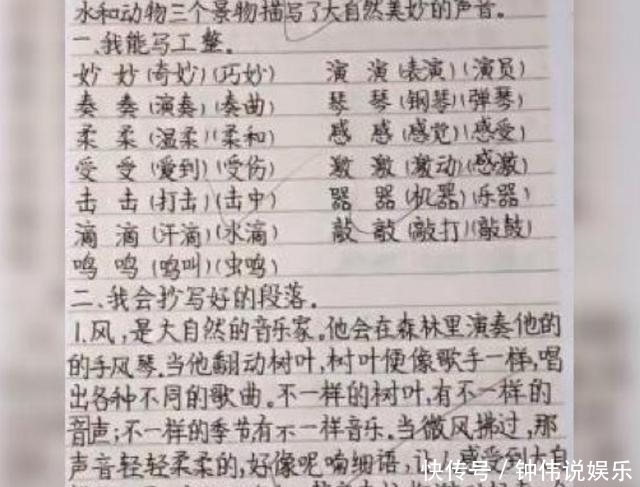 水和动物三个景物描写了大自然美妙的声音。
一、我能写工整。
妙 妙(奇妙)(巧妙) 演 演(表演)(演员)
奏 奏(演奏)(奏曲) 琴 琴(钢琴)(弹琴)
柔 柔(温柔)(柔和) 感 感(感觉)(感受)
受 受(爱到)(受伤) 激 激(激动)(感激)
击 击(打击)(击中) 器 器(机器)(乐器)
滴 滴(汗滴)(水滴) 敲 敲(敲打)(敲鼓)
鸣 鸣(鸣叫)(虫鸣)
二、我会抄写好的段落。
1.风,是大自然的音乐家。他会在森林里演奏他的
的手风琴。当他翻动树叶,树叶便像歌手一样,唱
出各种不同的歌曲。不一样的树叶,有不一样的
音声;不一样的季节有不一样音乐。当微风拂过,那
声音轻轻柔柔的,好像呢喃细语,让 感受到大自
快传号/钟伟说娱乐